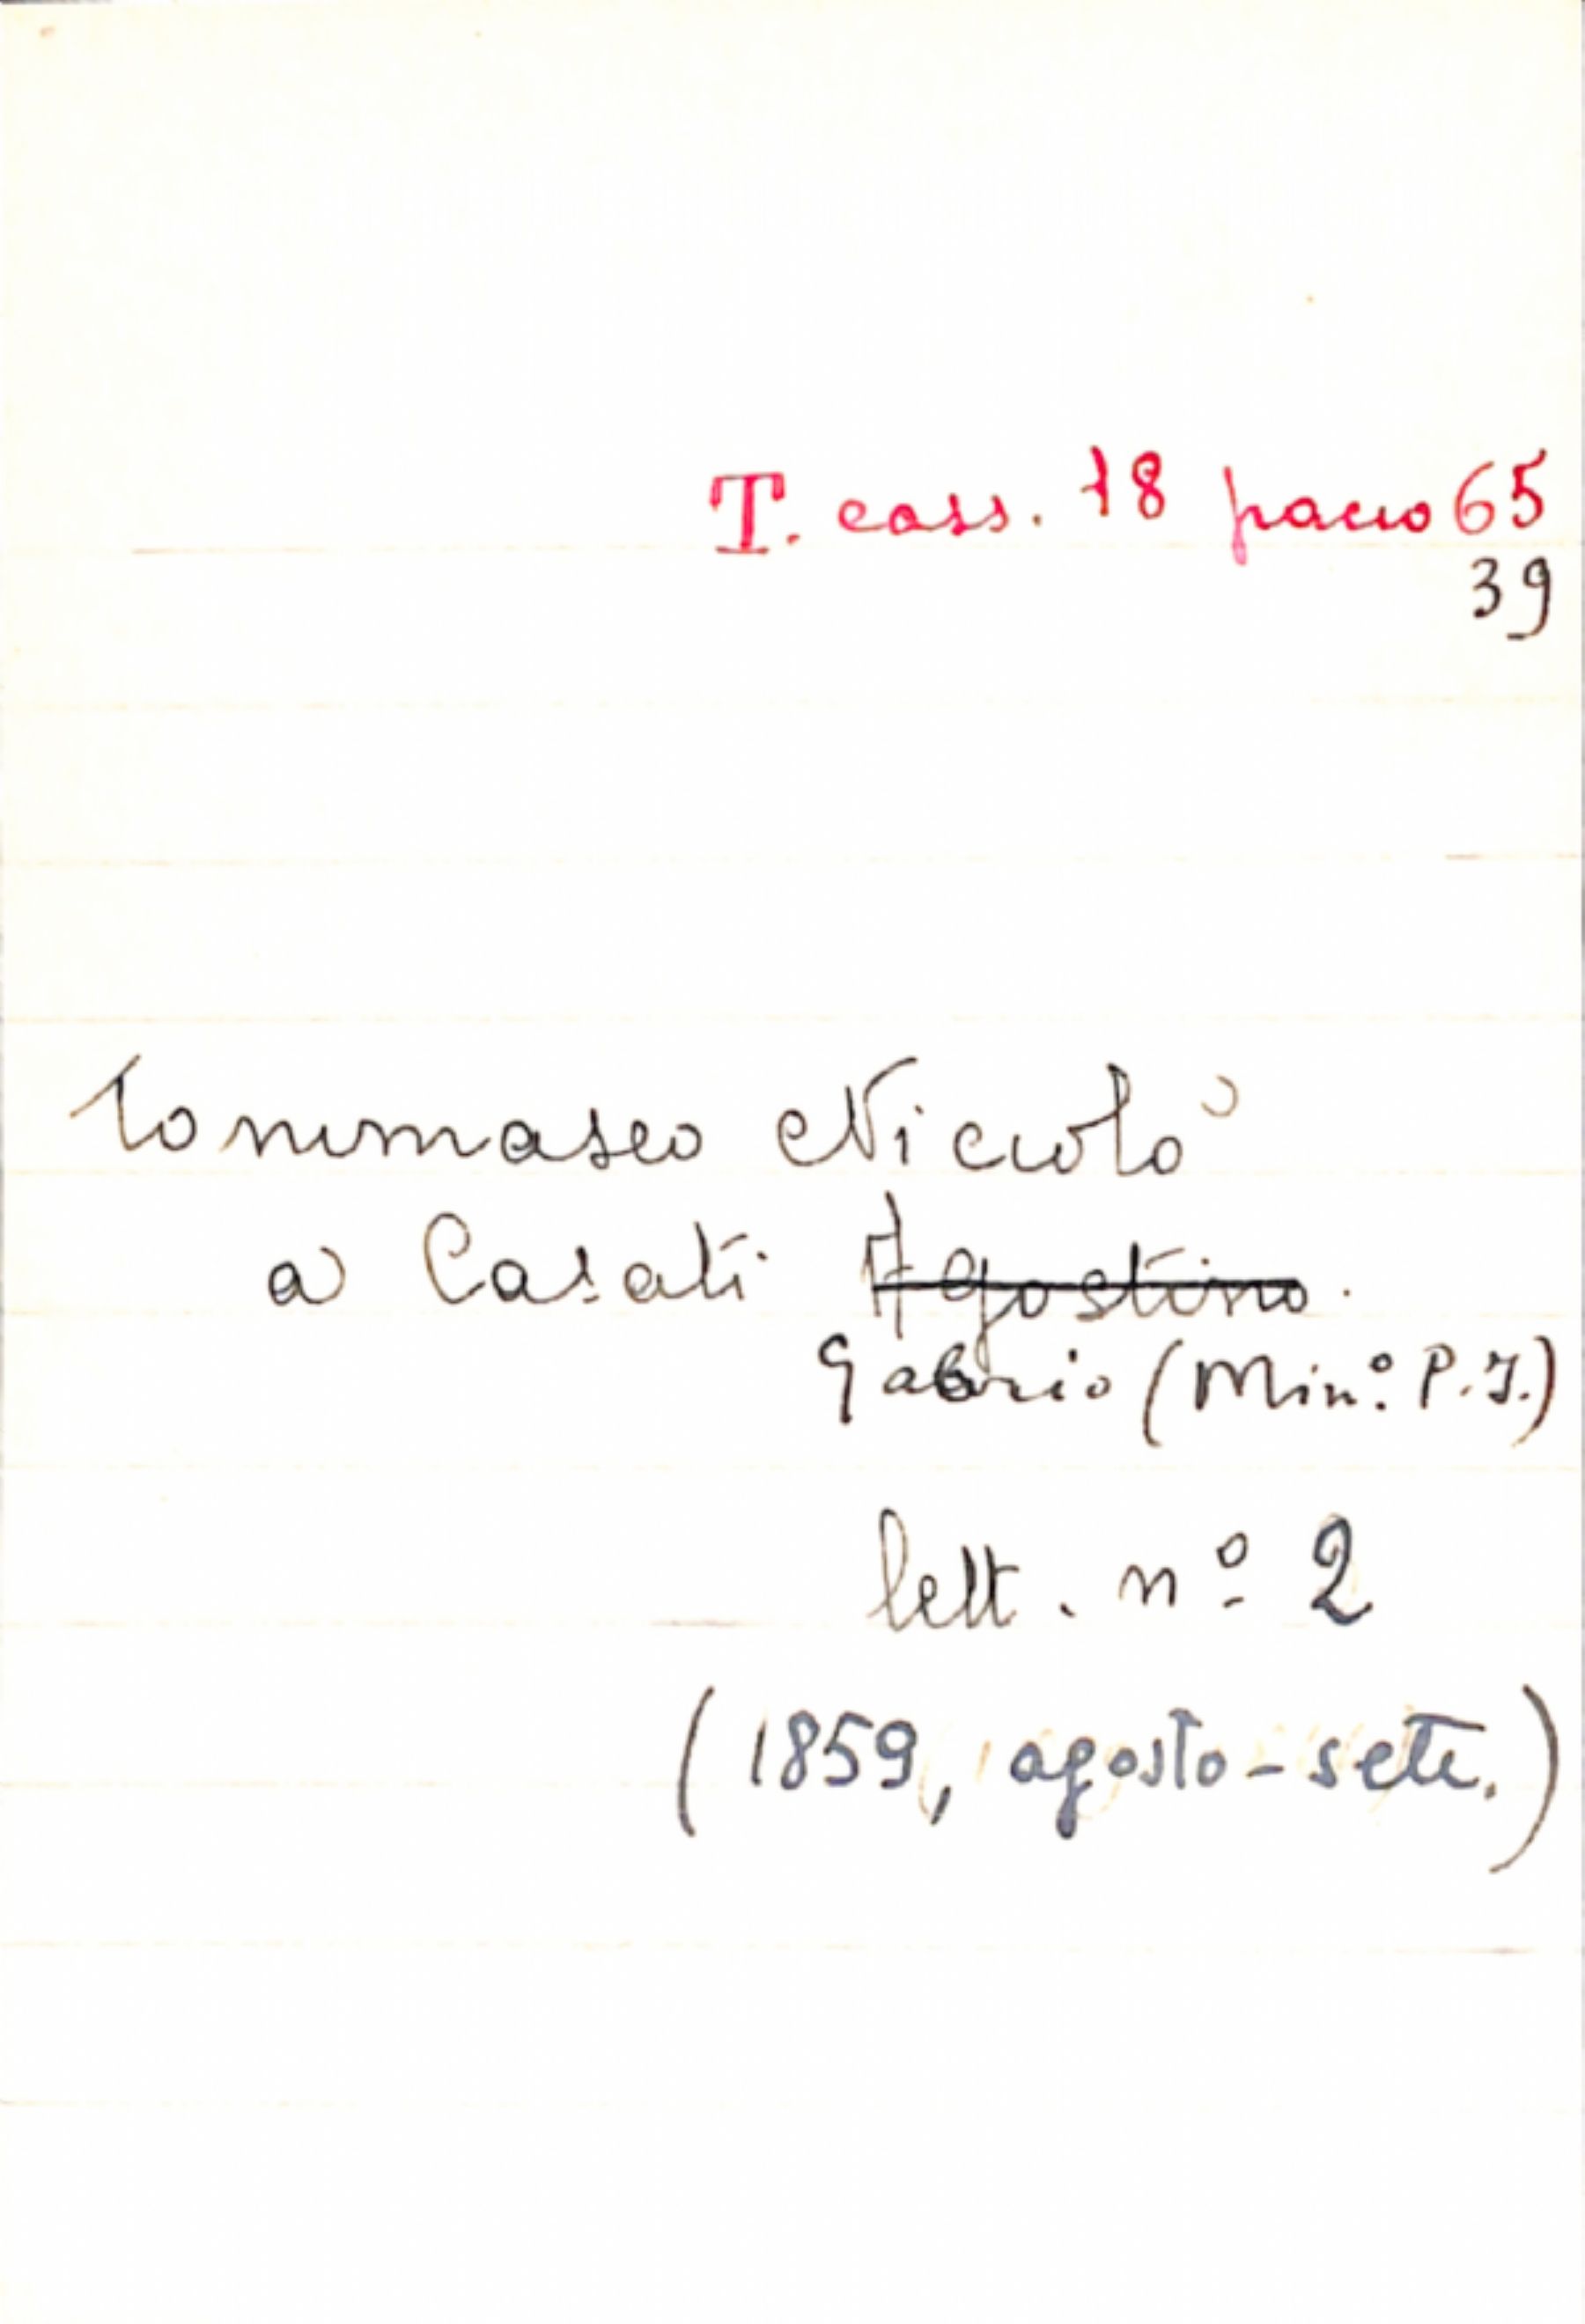 T. cass. 18 pacco 65
39
Tommaseo Niccolò
a Casati Agostino.
Gabrio (Min.º P.I.)
lett. nº 2
(1859, agosto-sett.)